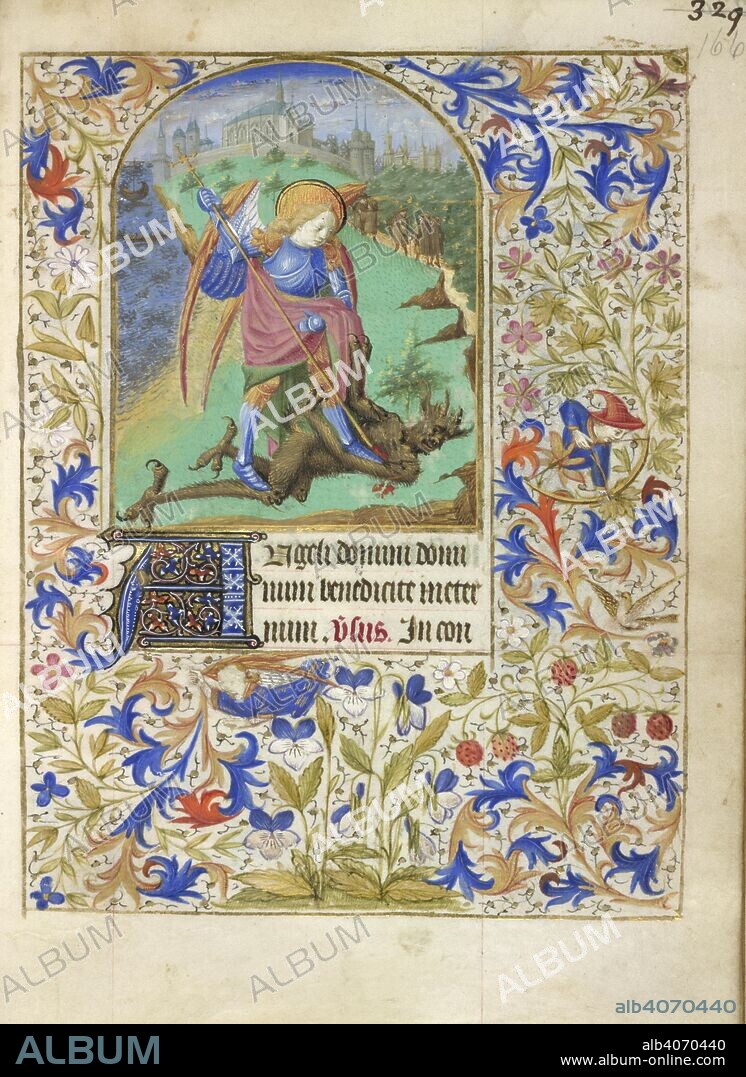 329
166
Angeli domini domi
num benedicite in eter
num. V̄sus. In con
alb4070440
ALBUM
alb4070440
www.album-online.com